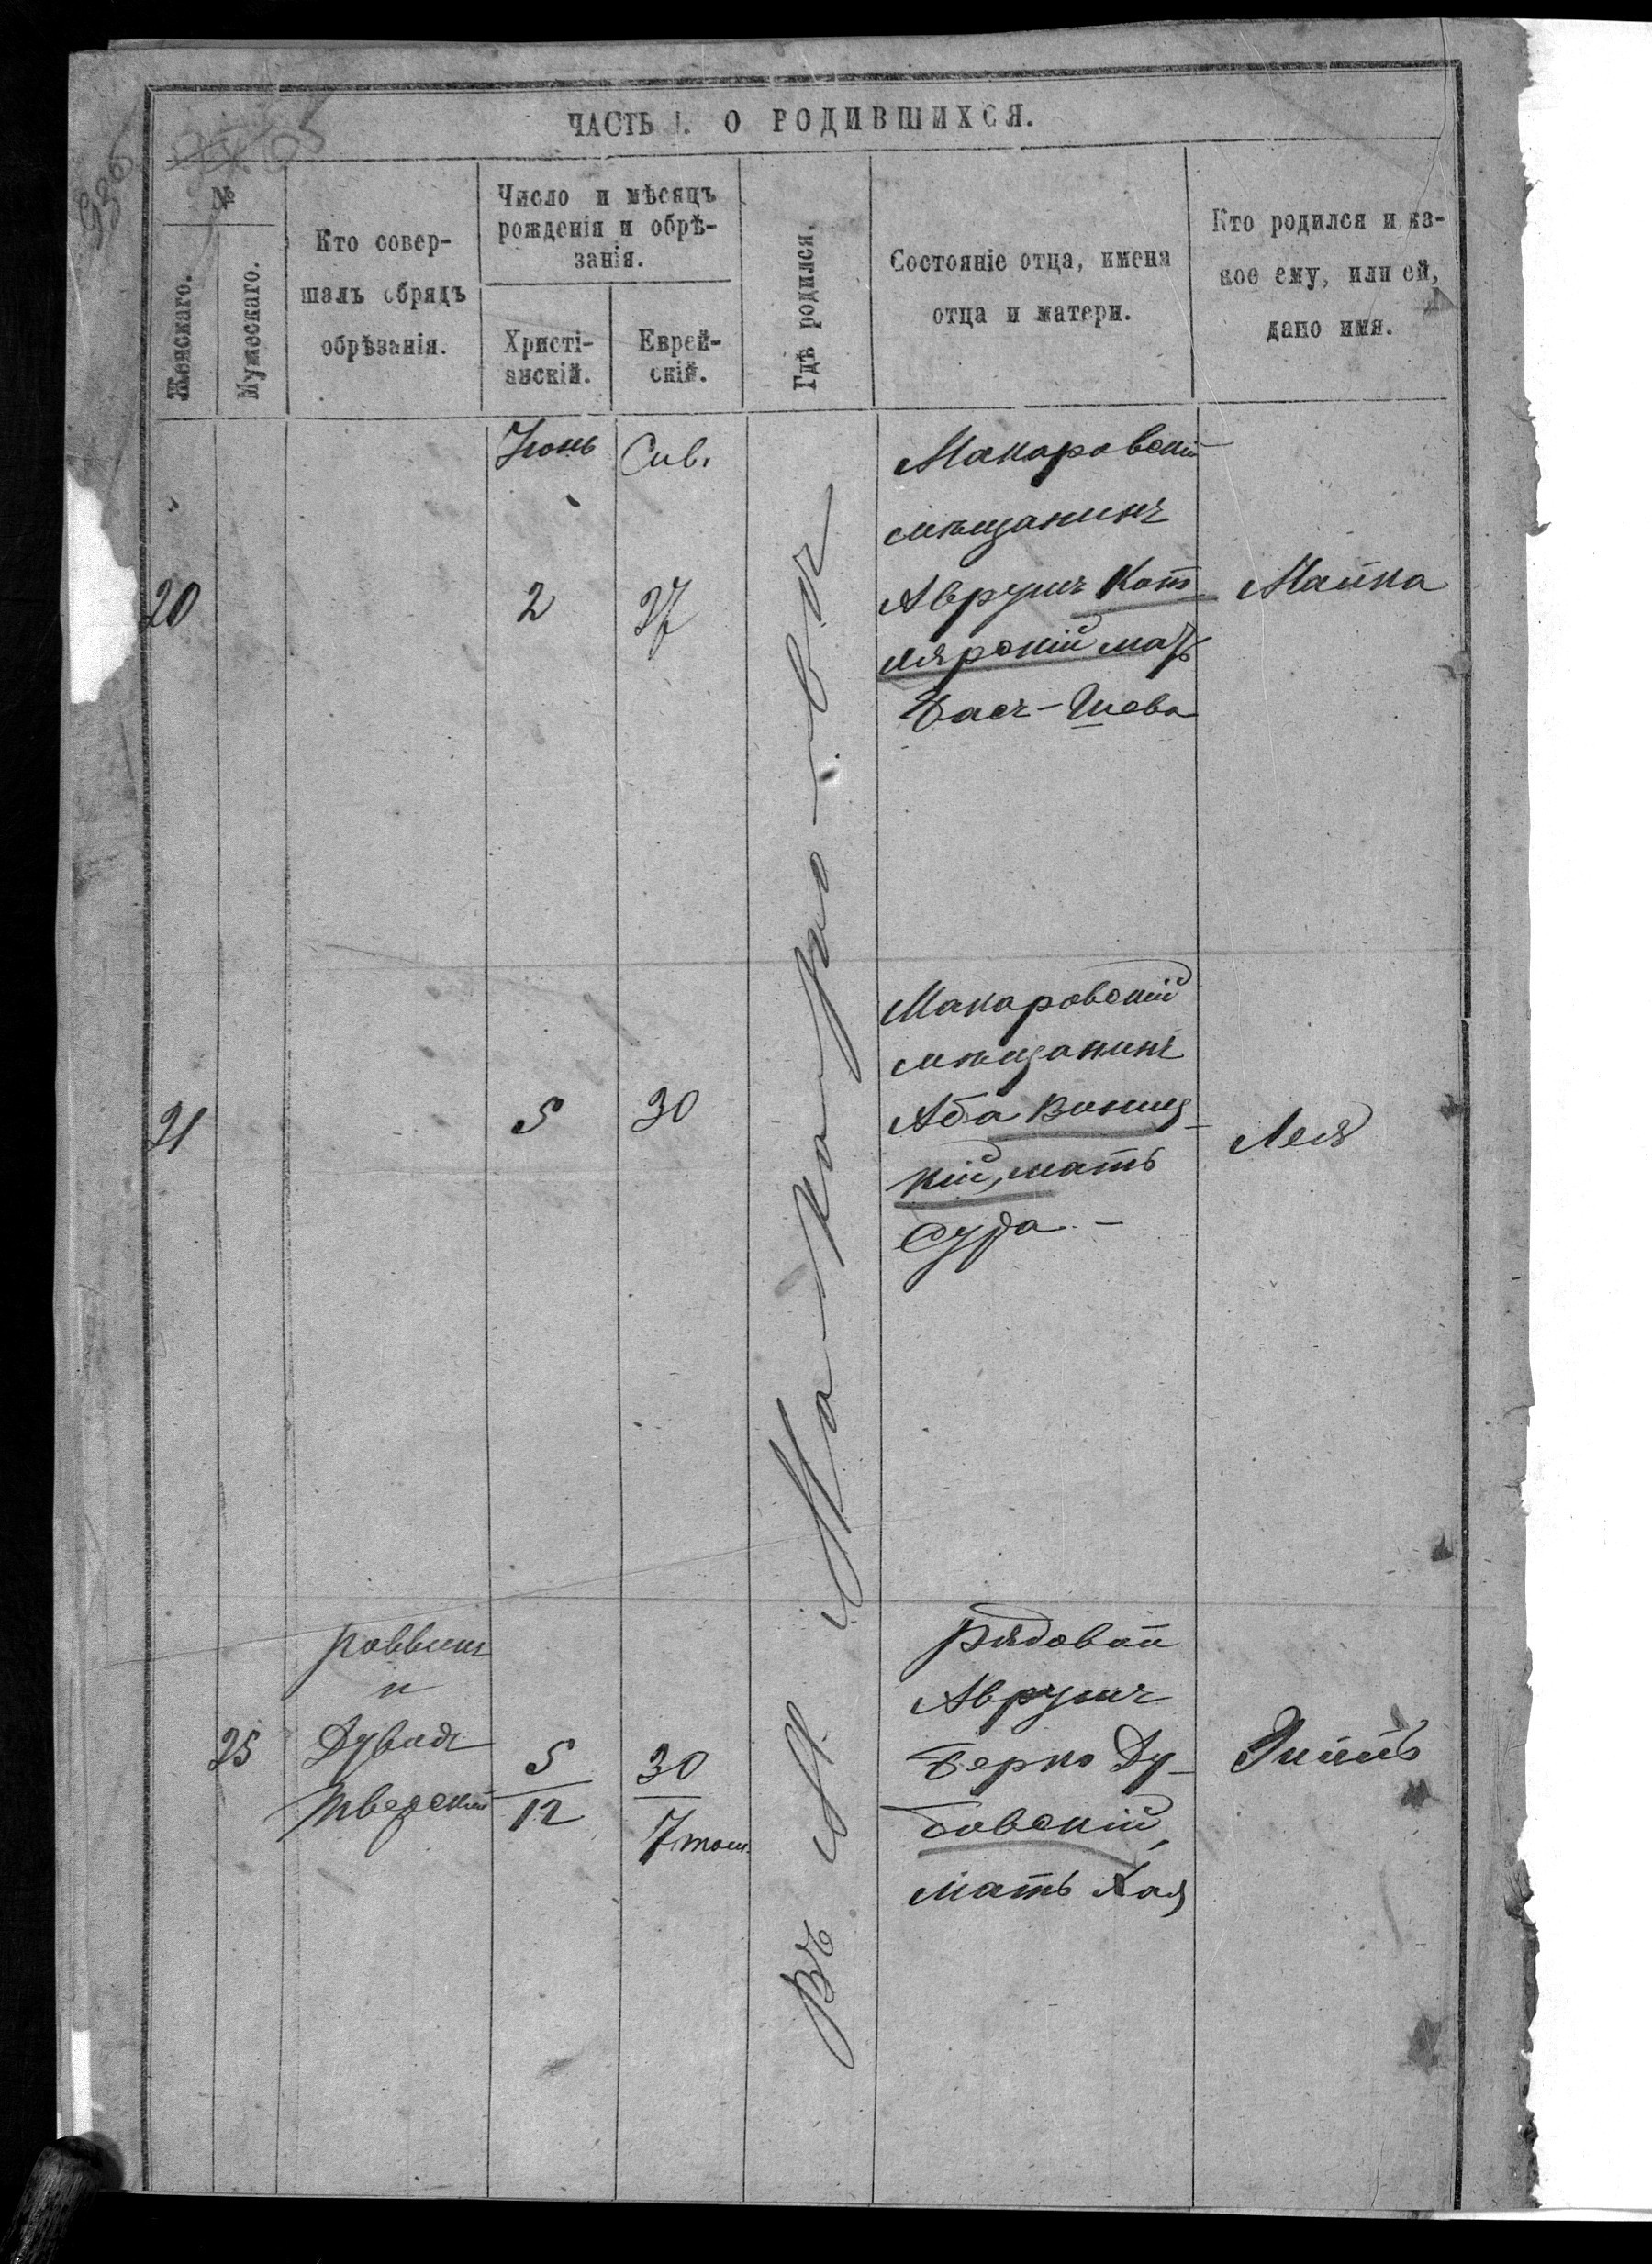 ЧАСТЬ I. О РОДИВШИХСЯ.
№
Женскаго.
Мужескаго.
Кто совер-
шалъ обрядъ
обрѣзанія.
Число и мѣсяцъ
рожденія и обрѣ-
занія.
Христі-
анскій.
Еврей-
скій.
Гдѣ родился.
Состояніе отца, имена
отца и матери.
Кто родился и ка-
кое ему, или ей,
дано имя.
Въ М. Макаровѣ
Іюнь Сив.
20
2
27
Макаровскій
мѣщанинъ
Аврумъ Кот-
лярскій мать
Бася-Шева
Малка
21
5
30
Макаровскій
мѣщанинъ
Аба Винниц-
кій, мать
Сура -
Лея
25
Раввинъ
и
Дувидъ
Тверскій
5
12
30
7 там.
Рядовой
Аврумъ
Берко Ду-
бовскій,
мать Хая